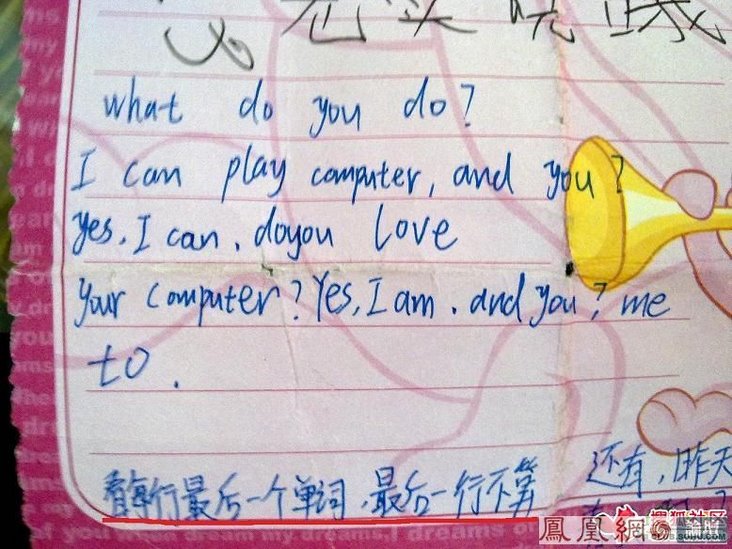 what do you do?
I can play computer, and you?
yes. I can. doyou love
your computer? Yes, I am. and you? me
to.
看每行最后一个单词,最后一行不算
还有,昨天
凤凰網
搜狐社区
SOHU.COM